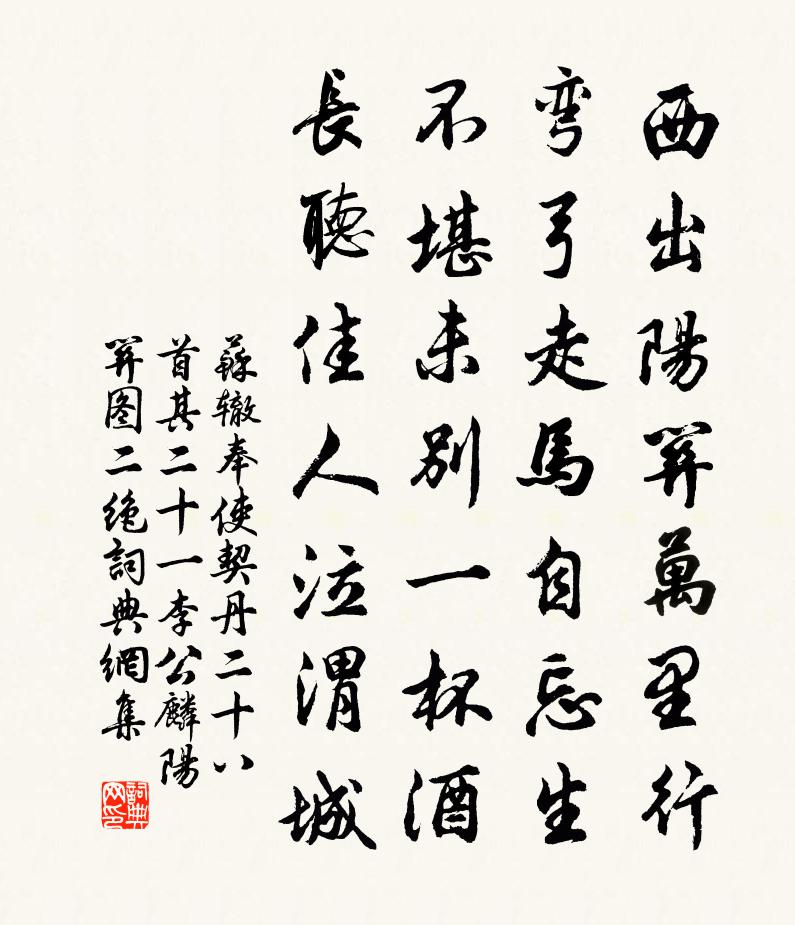 西出陽關萬里行
弯弓走馬自忘生
不堪未別一杯酒
長聽佳人泣渭城
蘇辙奉使契丹二十八
首其二十一李公麟陽
關图二绝詞典網集
詞典网印